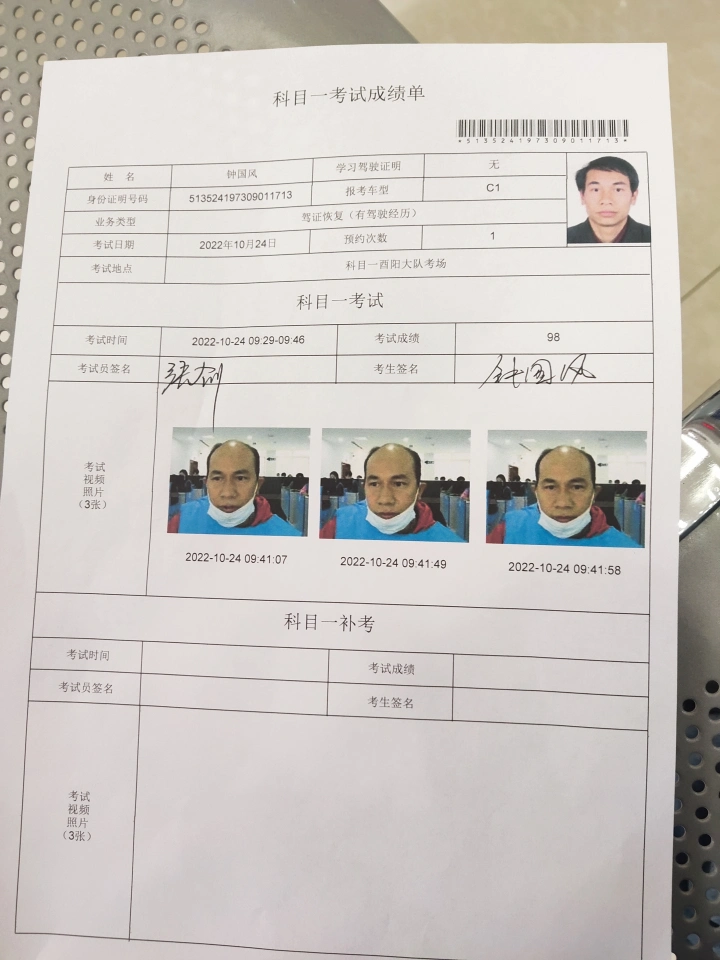 科目一考试成绩单
*513524197309011713*
姓 名 钟国风 学习驾驶证明 无
身份证明号码 513524197309011713 报考车型 C1
业务类型 驾证恢复（有驾驶经历）
考试日期 2022年10月24日 预约次数 1
考试地点 科目一酉阳大队考场
科目一考试
考试时间 2022-10-24 09:29-09:46 考试成绩 98
考试员签名 考生签名 钟国风
考试
视频
照片
（3张）
2022-10-24 09:41:07 2022-10-24 09:41:49 2022-10-24 09:41:58
科目一补考
考试时间 考试成绩
考试员签名 考生签名
考试
视频
照片
（3张）